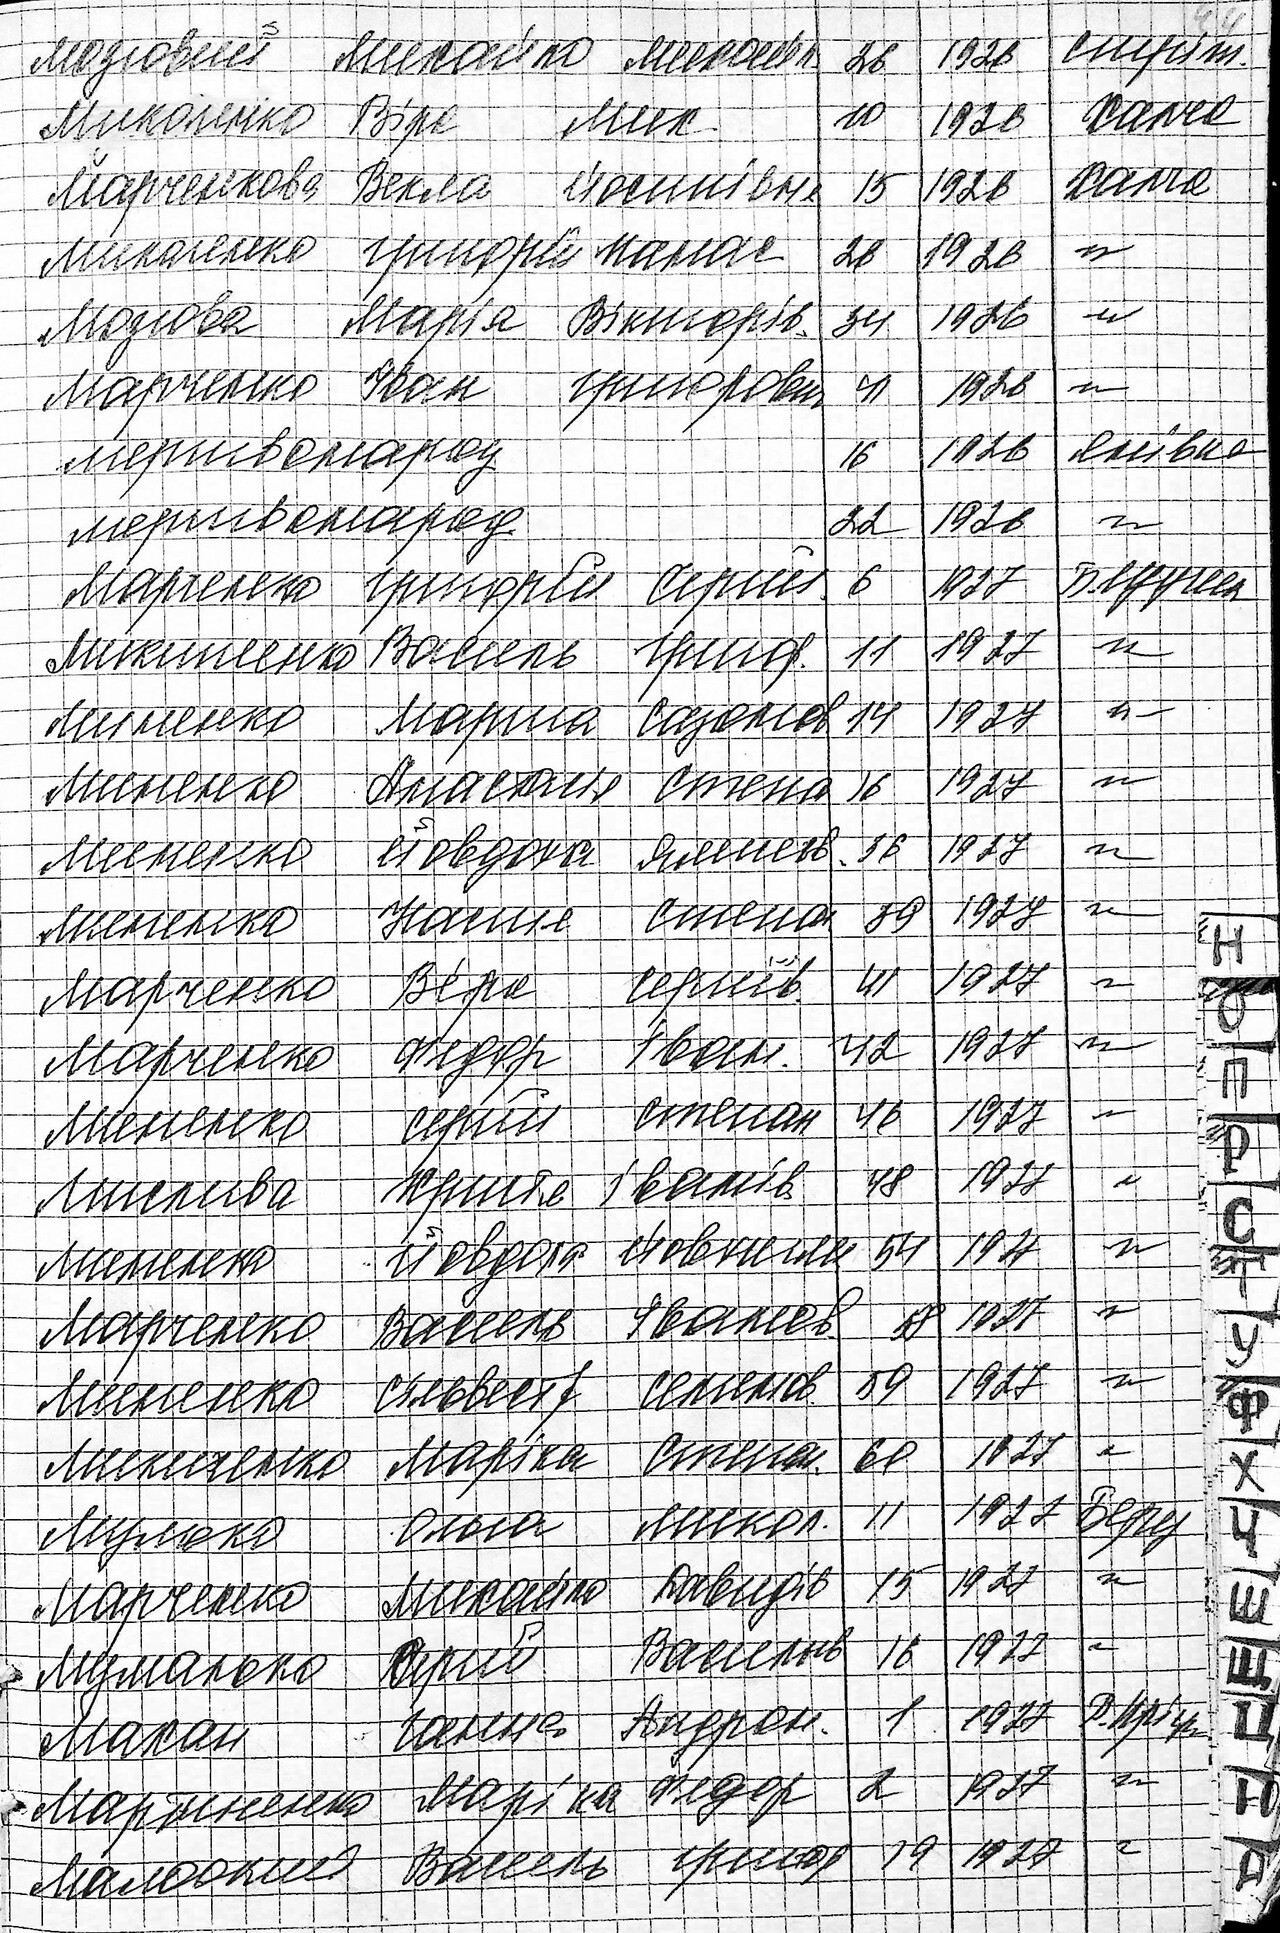 44
Мозговий Михайло Михайл. 28 1926 Смуріт.
Миколенко Віра Мик 10 1926 Халча
Марченкова Векла Йосипівна 15 1926 Халча
Миколенко Григорій Панас 28 1926 - " -
Мозгова Марія Вікторів. 34 1926 - " -
Марченко Іван Григорович 41 1926 - " -
мертвонарод 16 1926
мертвонарод 22 1926 - " -
Марченко Григорій Сергій. 6 1927
Микитченко Василь Григор. 11 1927 - " -
Миненко Марина Сазонов 14 1927 - " -
Миненко Анастасія Степа 16 1927 - " -
Миненко Йовдоха 36 1927 - " -
Миненко Настя Степан 39 1927 - " -
Марченко Віра Сергіїв. 41 1927 - " -
Марченко Федор Іван. 42 1927 - " -
Миненко Сергій Степан 46 1927 - " -
Мислива Христя Іванів. 48 1927 "
Миненко Йовдоха 54 1927 - " -
Марченко Василь Іванов 58 1927 - " -
Миненко Сильвестр Семенов 59 1927 - " -
Микитченко Маріка Степан. 60 1927 "
Ольга Микол. 11 1927
Марченко Михайло Давидів 15 1927 - " -
Юрій Васильів 16 1927 - " -
Махан Ганна Андрон. 1 1927
Мартиненко Маріка Федор 2 1927 - " -
Василь Григор 19 1927 "
Н
О
П
Р
С
Т
У
Ф
Х
Ч
Ш
Щ
Ц
Ю
Я